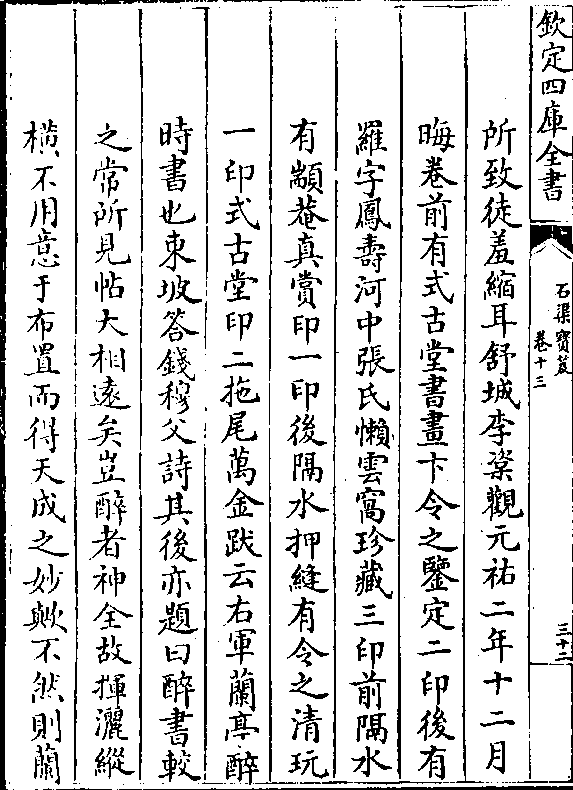 欽定四庫全書
石渠寶笈
卷十三
三十二
所致徒羞縮耳舒城李楶觀元祐二年十二月
晦卷前有式古堂書畫卞令之鑒定二印後有
羅字鳳壽河中張氏懶雲窩珍藏三印前隔水
有顓菴真賞印一印後隔水押縫有令之清玩
一印式古堂印二拖尾萬金跋云右軍蘭亭醉
時書也東坡答錢穆父詩其後亦題曰醉書較
之常所見帖大相遠矣豈醉者神全故揮灑縱
橫不用意于布置而得天成之妙歟不然則蘭